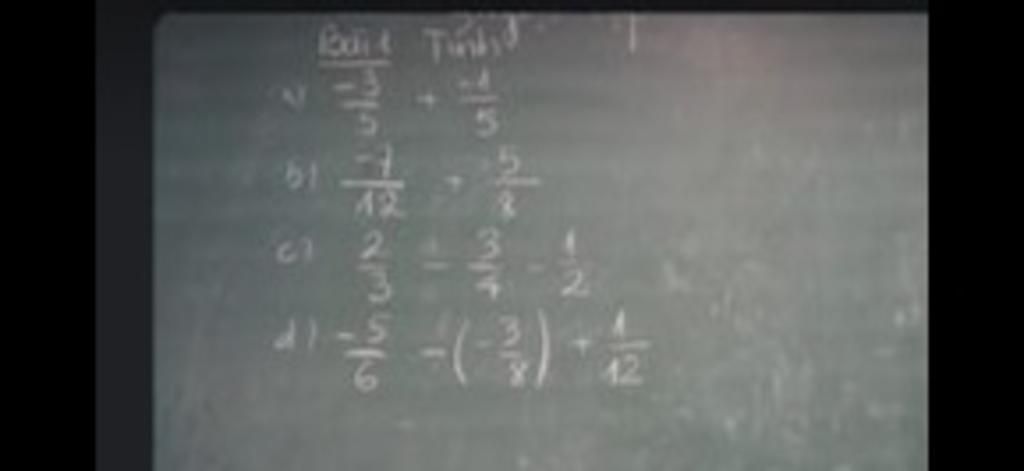 Bài 1 Tính
a) -3/5 + -1/5
b) -7/12 + 5/8
c) 2/3 - 3/4 - 1/2
d) -5/6 - (-3/8) + 1/12